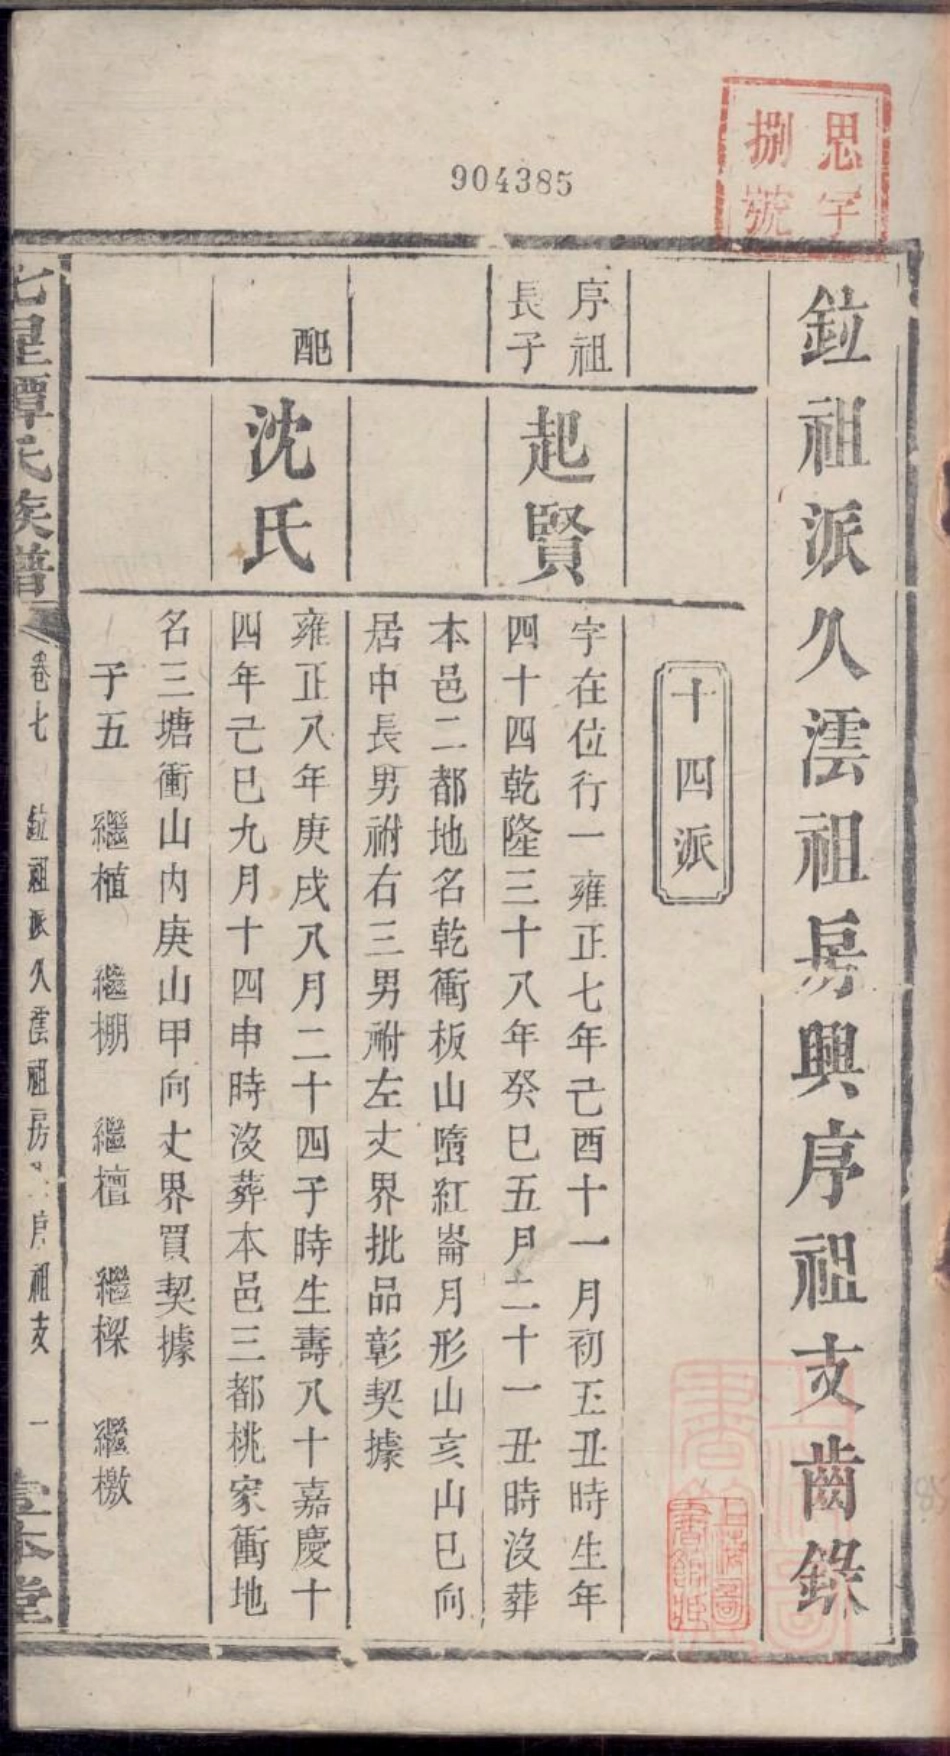 思字
捌號
904385
鉝祖派久澐祖房興序祖支齒錄
十四派
序祖
長子
起賢
字在位行一雍正七年己酉十一月初五丑時生年
四十四乾隆三十八年癸巳五月二十一丑時沒葬
本邑二都地名乾衝板山墮紅崙月形山亥山巳向
居中長男祔右三男祔左丈界批品彰契據
配
沈氏
雍正八年庚戌八月二十四子時生壽八十嘉慶十
四年己巳九月十四申時沒葬本邑三都桃家衝地
名三塘衝山內庚山甲向丈界買契據
子五 繼植 繼棚 繼檀 繼樑 繼檄
七星譚氏族譜
卷七
鉝祖派久澐祖房 序祖支
一
堂
上海圖書館藏